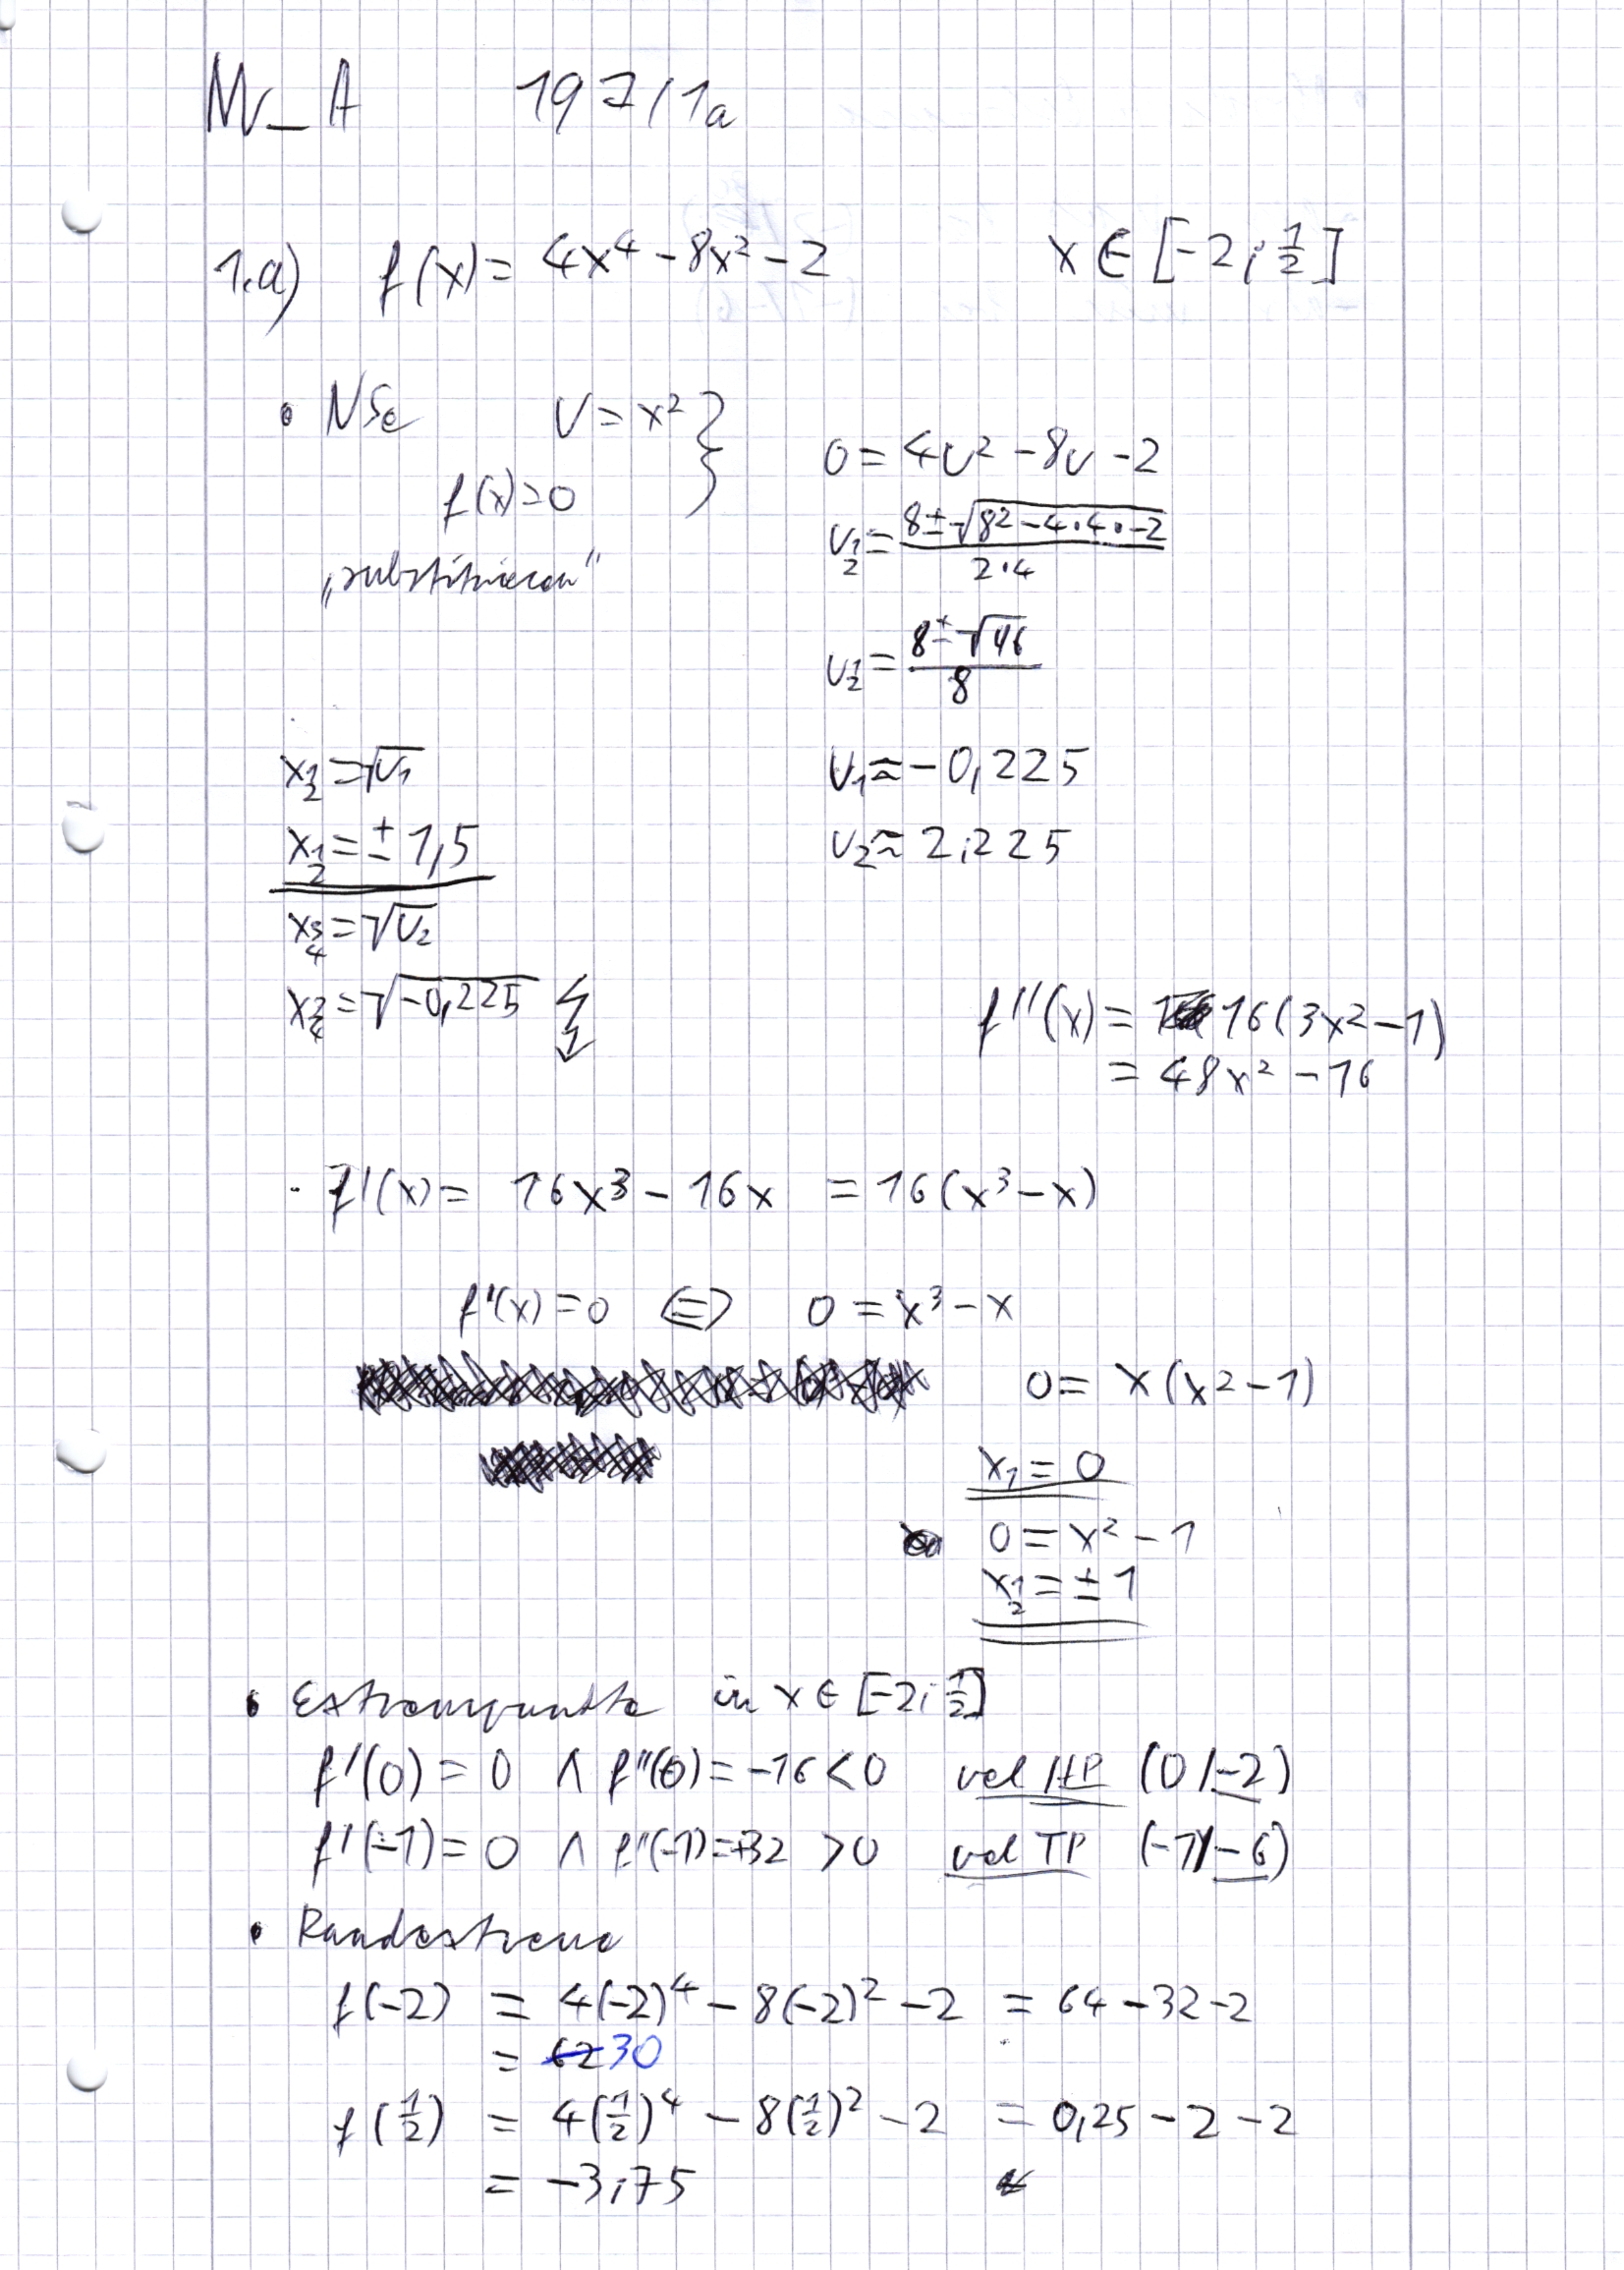 M_A 197/1a
1.a) f(x) = 4x⁴ - 8x² - 2 x ∈ [-2; 1/2]
• NSe U = x² }
f(x) = 0
"substituieren"
0 = 4U² - 8U - 2
U₁/₂ = (8 ± √(8² - 4·4·-2)) / (2·4)
U₁/₂ = (8 ± √96) / 8
U₁ ≈ -0,225
U₂ ≈ 2,225
x₁/₂ = √U₁
x₁/₂ = ± 1,5
x₃/₄ = √U₂
x₃/₄ = √-0,225 ↯
f''(x) = 16(3x² - 1)
= 48x² - 16
- f'(x) = 16x³ - 16x = 16(x³ - x)
f'(x) = 0 ⇔ 0 = x³ - x
0 = x(x² - 1)
x₁ = 0
0 = x² - 1
x₁/₂ = ± 1
• Extrempunkte in x ∈ [-2; 1/2]
f'(0) = 0 ∧ f''(0) = -16 < 0 rel HP (0/-2)
f'(-1) = 0 ∧ f''(-1) = +32 > 0 rel TP (-1/-6)
• Randextrema
f(-2) = 4(-2)⁴ - 8(-2)² - 2 = 64 - 32 - 2
= 62 30
f(1/2) = 4(1/2)⁴ - 8(1/2)² - 2 = 0,25 - 2 - 2
= -3,75